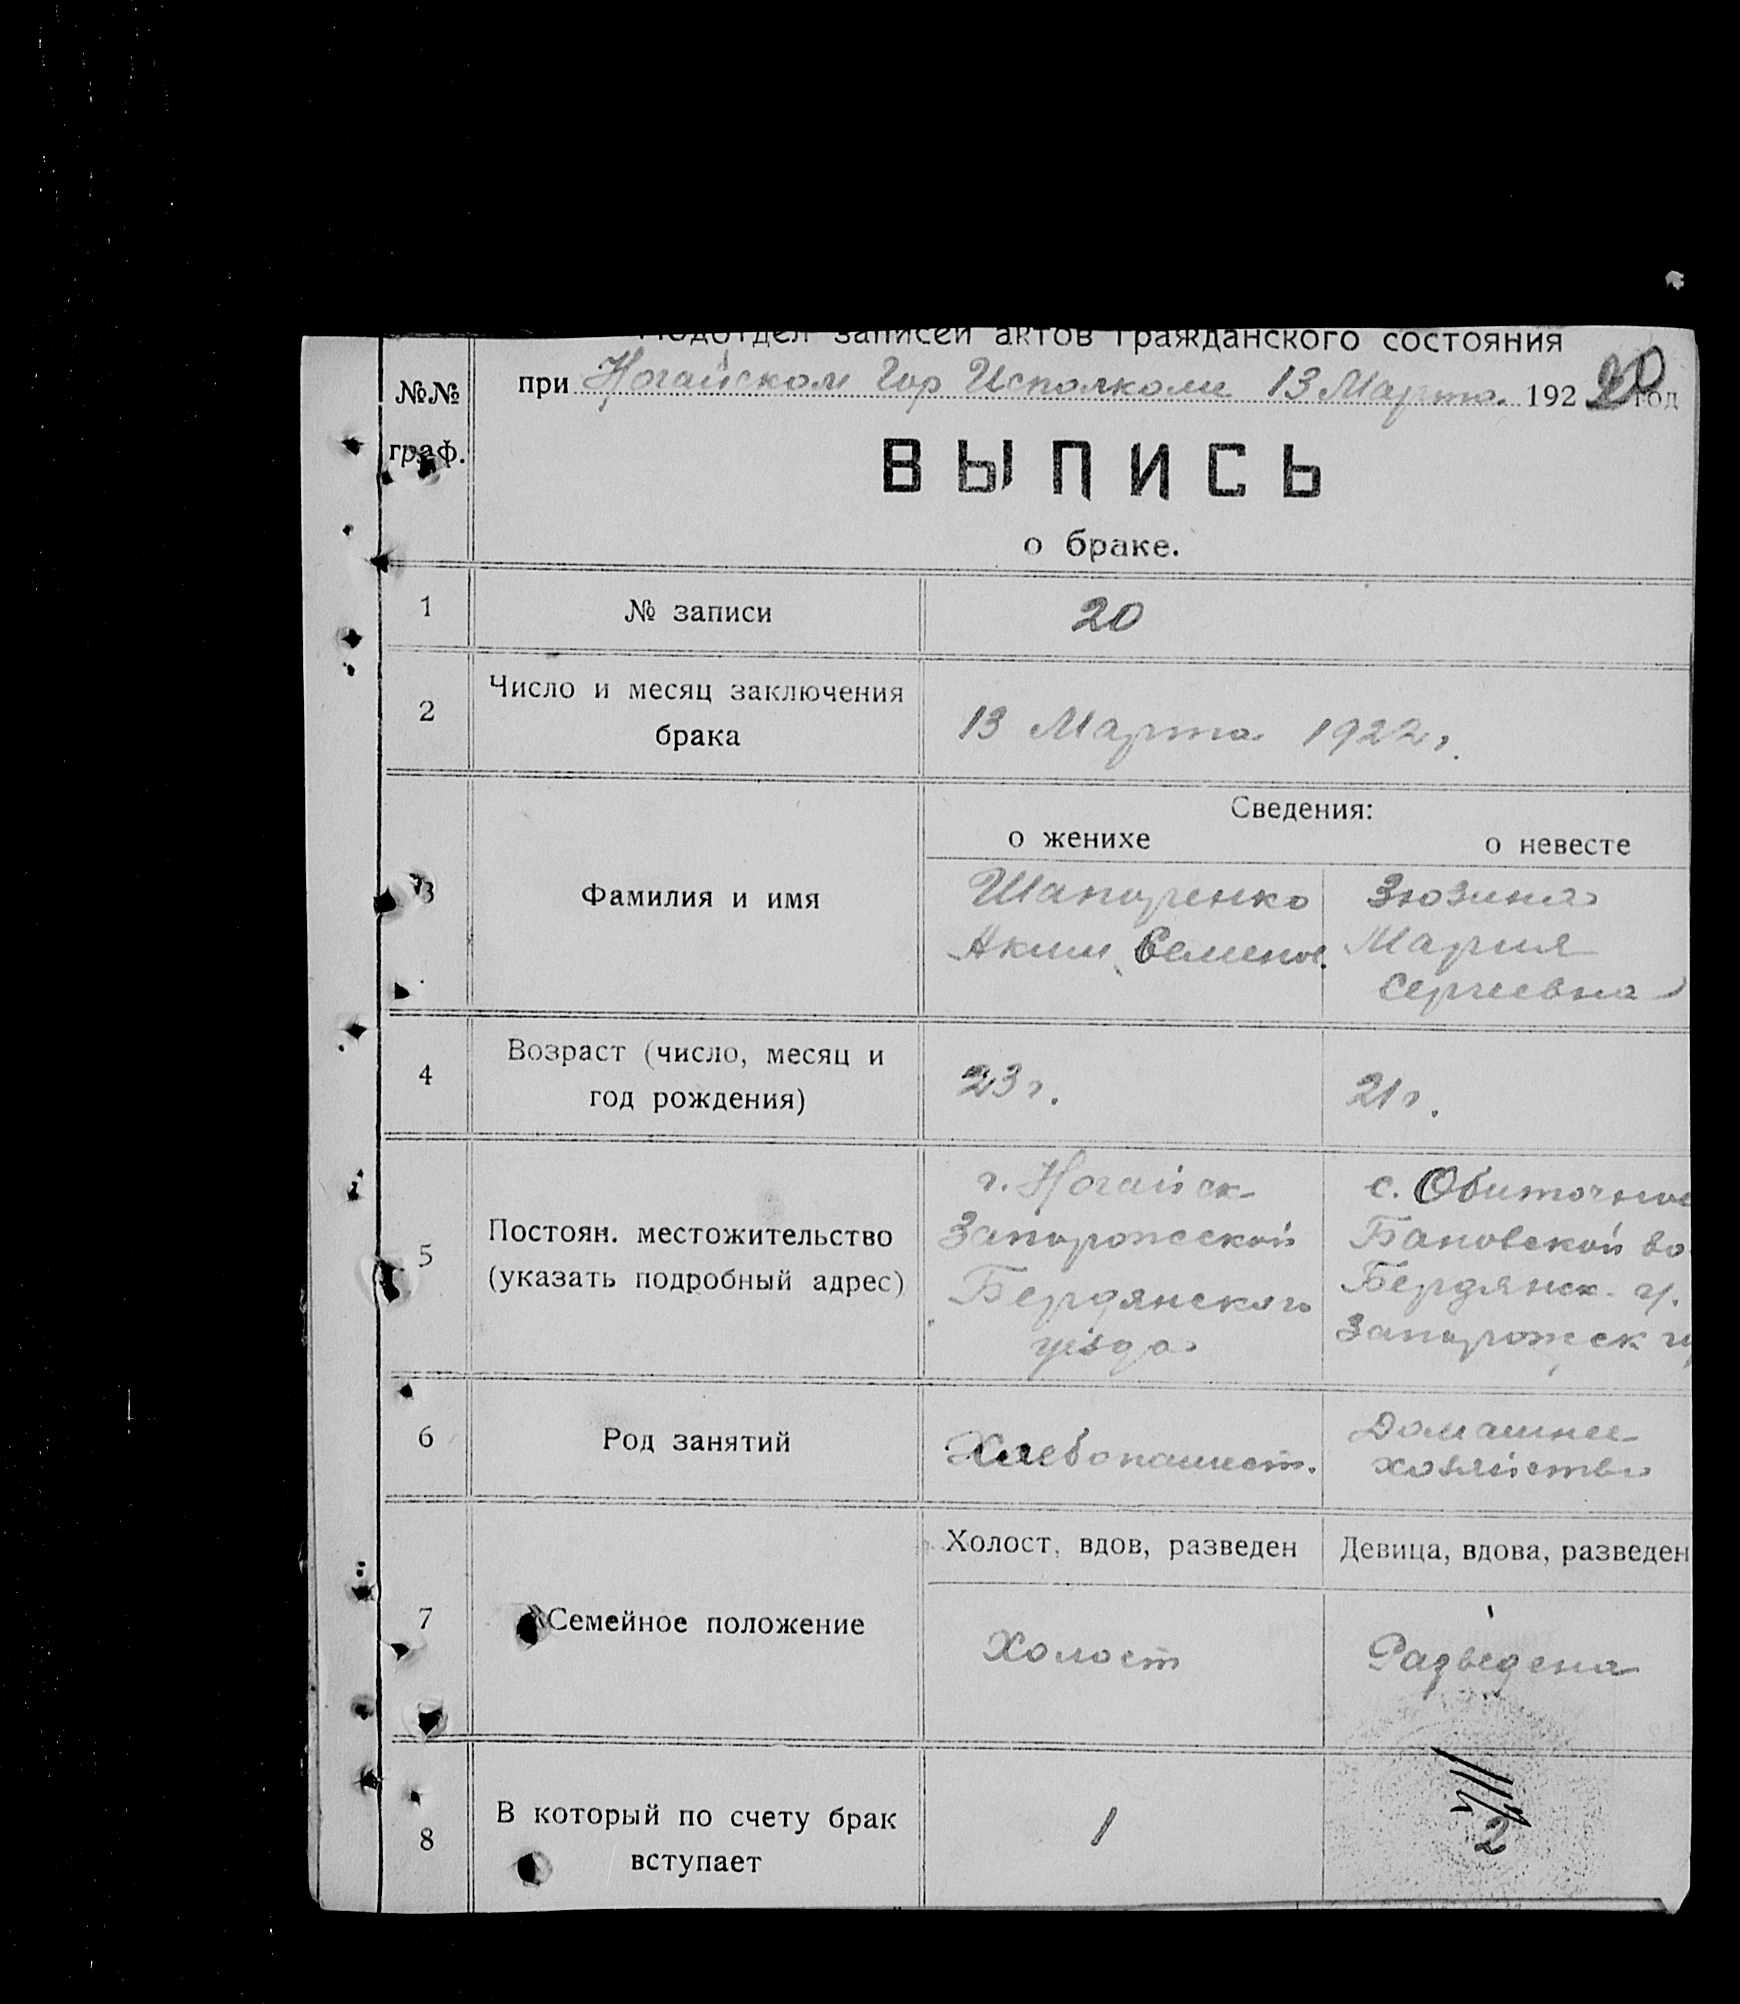 Подотдел записей актов гражданского состояния
№№ граф.
при Ногайском Гор Исполкоме 13 Марта 192 год
20
ВЫПИСЬ
о браке.
1 № записи 20
2 Число и месяц заключения брака 13 Марта 1922 г.
Сведения:
о женихе о невесте
3 Фамилия и имя
Шапоренко Зюзина
Аким Семенов. Мария
Сергеевна
4 Возраст (число, месяц и год рождения) 23 г. 21 г.
5 Постоян. местожительство (указать подробный адрес)
г. Ногайск с. Обиточное
Запорожской Бановской во
Бердянского Бердянск. у.
уезда Запорожск
6 Род занятий
Хлебопашест. Домашнее
хозяйство
Холост, вдов, разведен Девица, вдова, разведен
7 Семейное положение Холост Разведена
8 В который по счету брак вступает 1 2